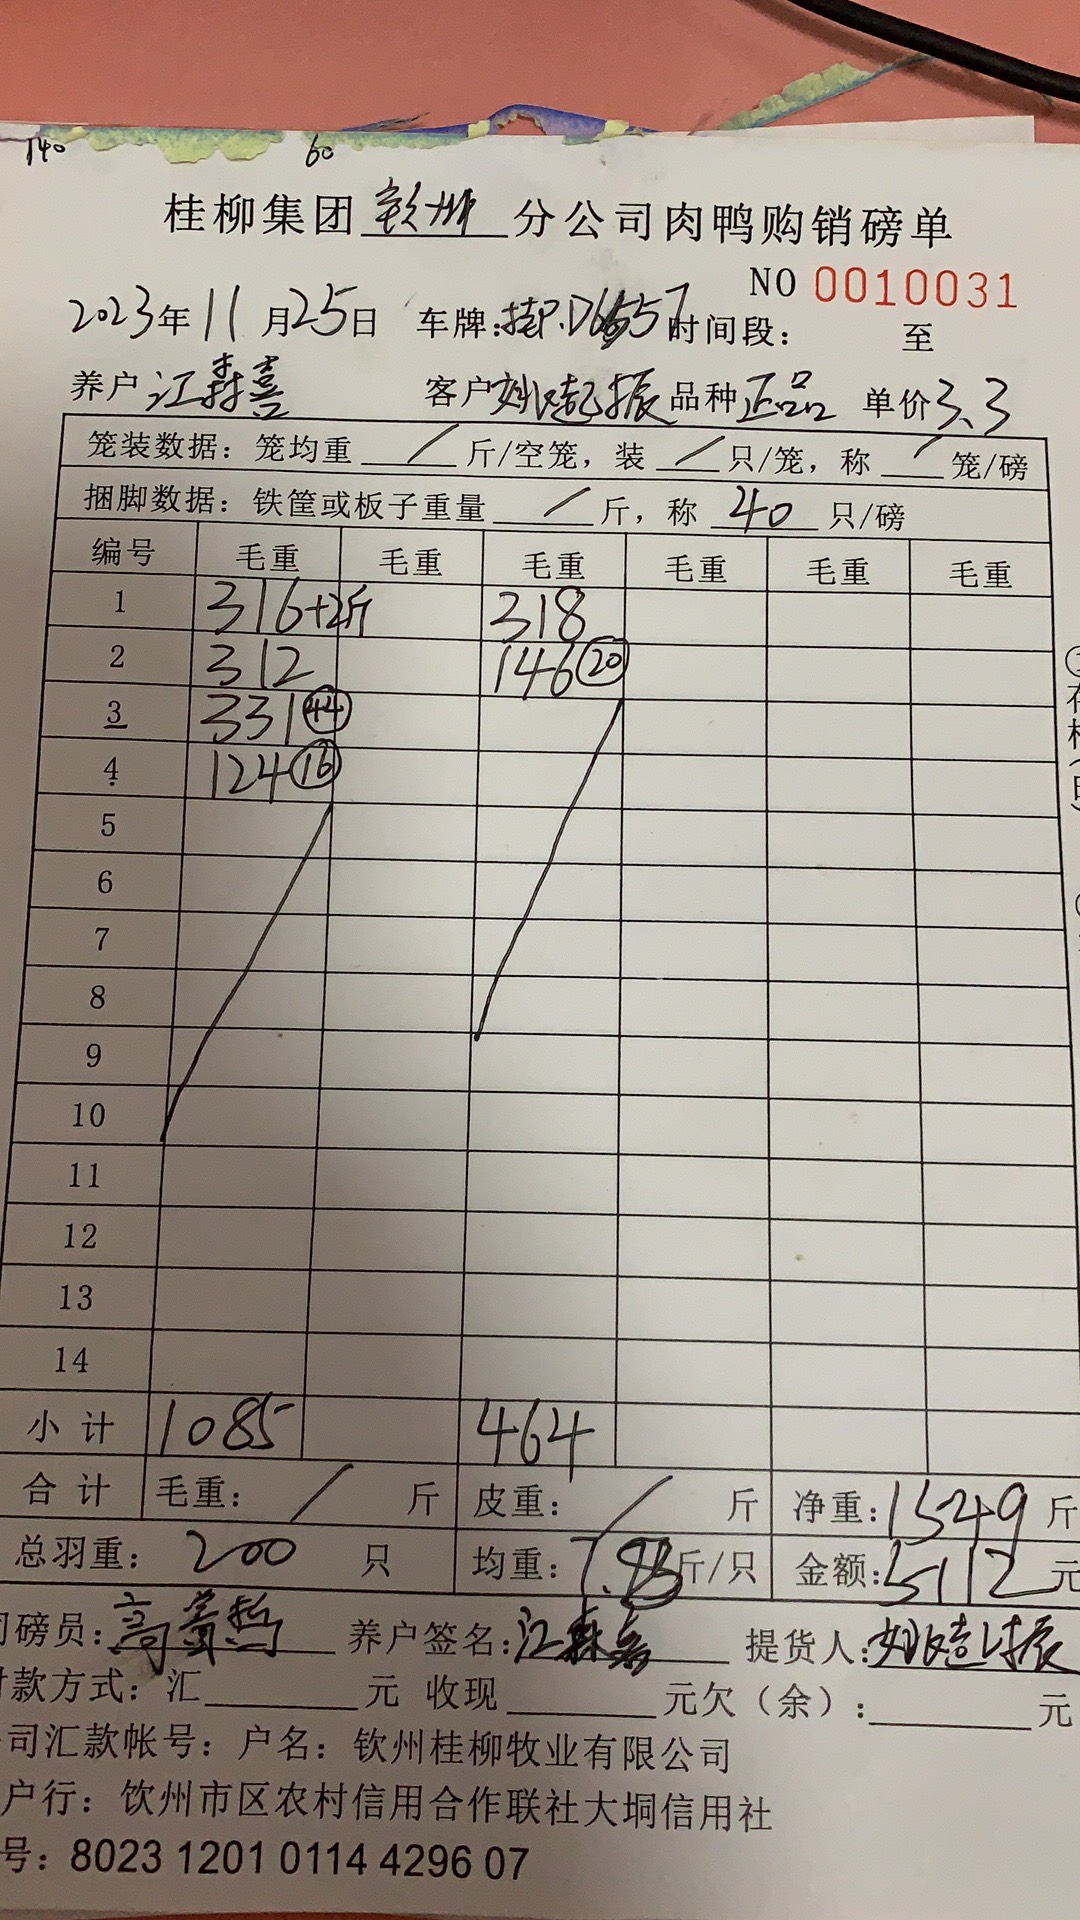 140 60
桂柳集团 钦州 分公司肉鸭购销磅单
NO 0010031
2023年11月25日 车牌: 时间段: 至
养户 江森喜 客户 姚起振 品种 正品 单价 3.3
笼装数据: 笼均重 / 斤/空笼, 装 / 只/笼, 称 / 笼/磅
捆脚数据: 铁筐或板子重量 / 斤, 称 40 只/磅
编号 毛重 毛重 毛重 毛重 毛重 毛重
1 316+2斤 318
2 312 146 20
3 331 44
4 124 16
5
6
7
8
9
10
11
12
13
14
小计 1085 464
合计 毛重: / 斤 皮重: / 斤 净重: 1549 斤
总羽重: 200 只 均重: 斤/只 金额: 5112 元
磅员: 养户签名: 江森喜 提货人: 姚起振
款方式: 汇 元 收现 元欠(余): 元
司汇款帐号: 户名: 钦州桂柳牧业有限公司
户行: 钦州市区农村信用合作联社大垌信用社
号: 8023 1201 0114 4296 07